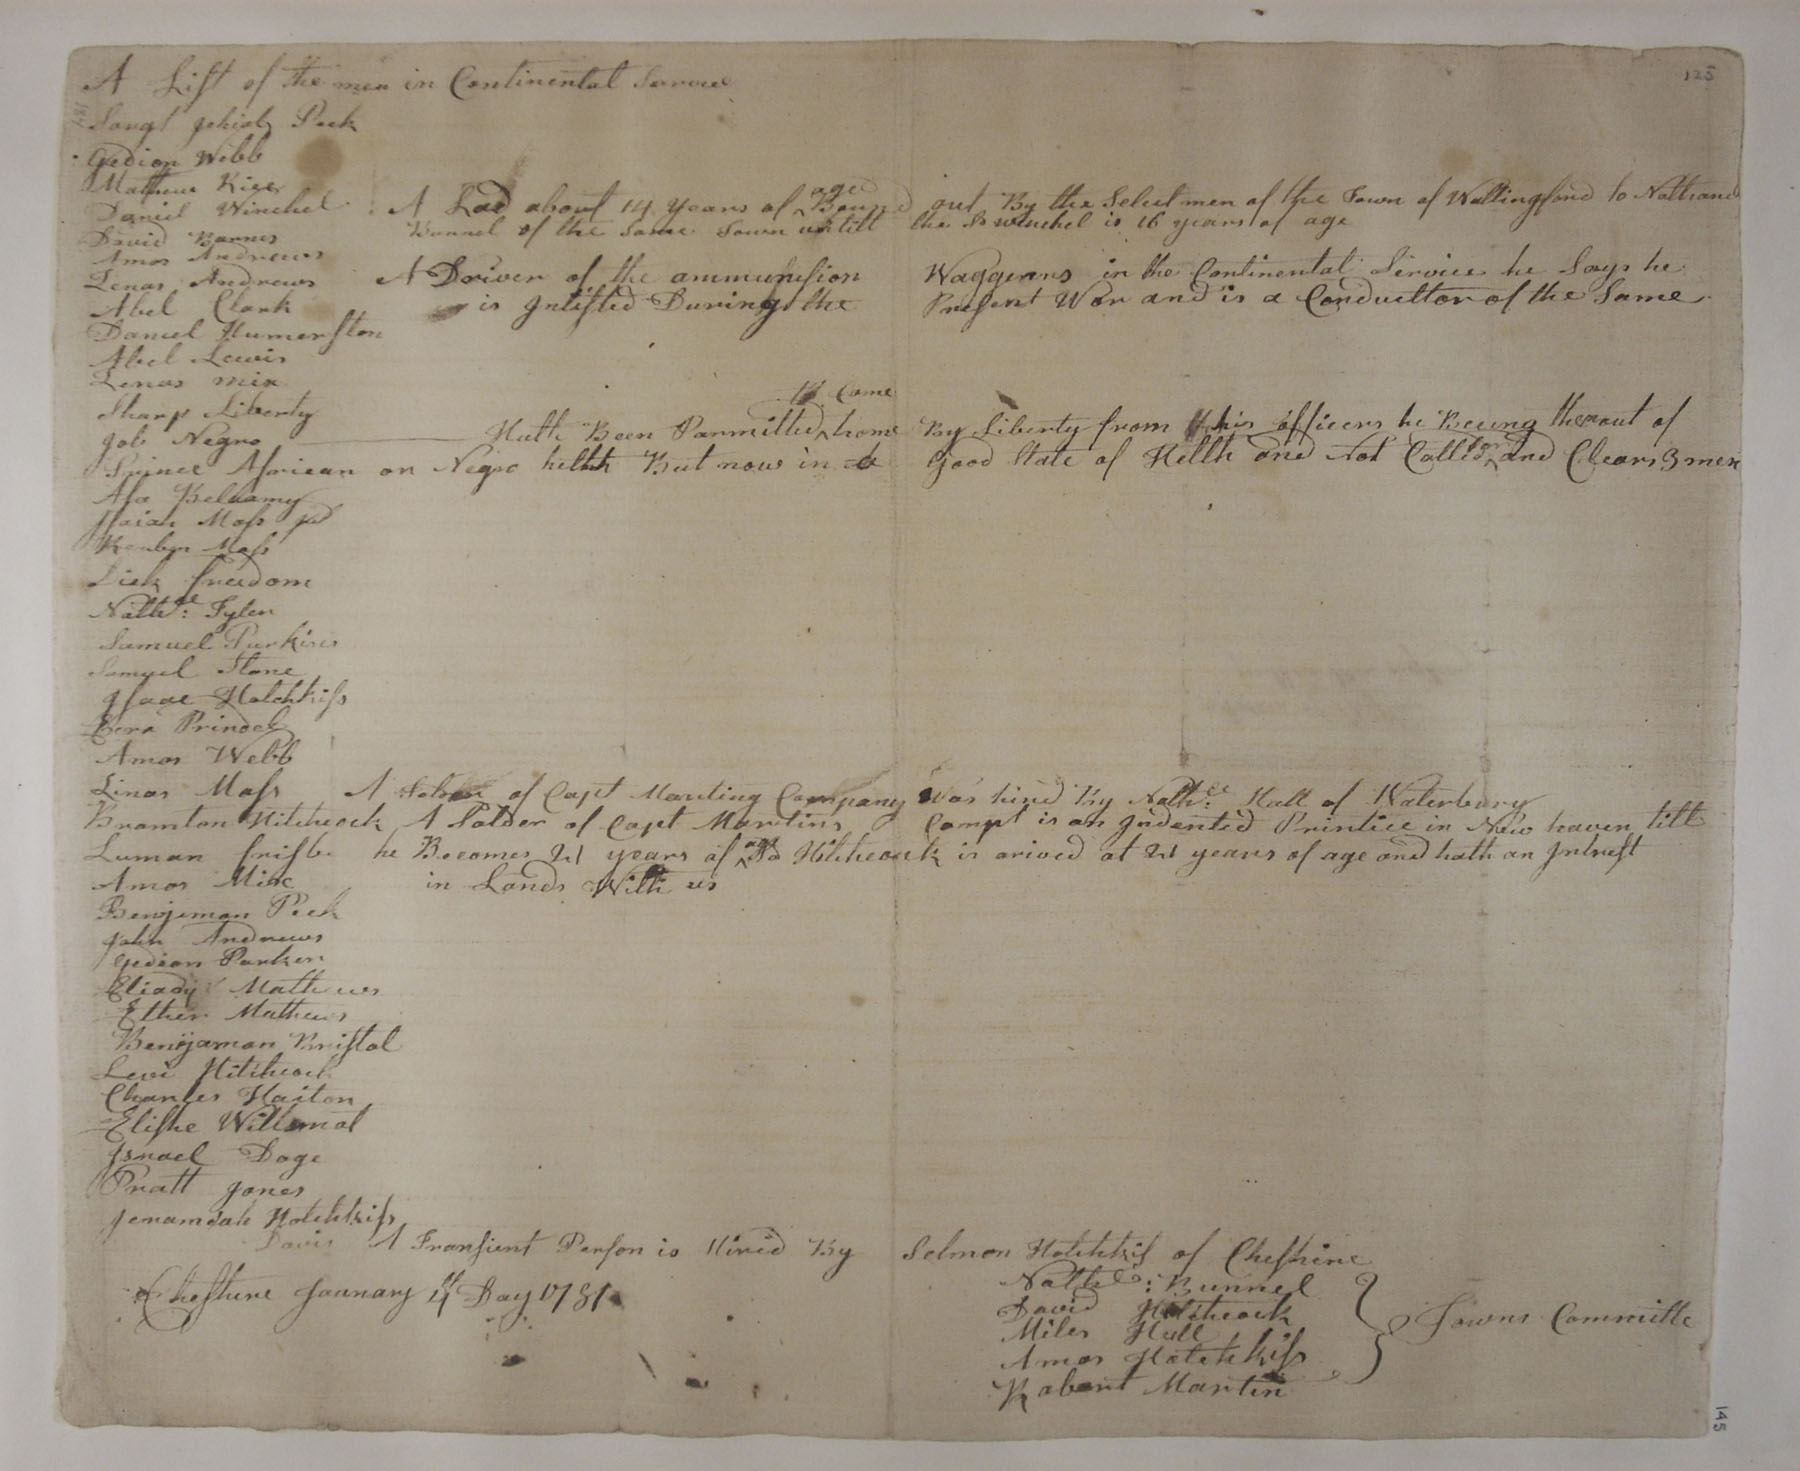 125
A List of the men in Continental Servise
Sargt Jehiel Peck
Gedion Webb
Mathew Rice
Daniel Winchel A Lad about 14 years of age Bound out By the Select men of the Town of Wallingford to Nathanel
Bunnel of the Same Town untill the Sd winchel is 16 years of age
David Barnes
Amos Andrews
Lenas Andrews A Driver of the ammunision Waggenns in the Continental Service he Says he
Abel Clark is Inlisted During the Present War and is a Conducttor of the Same
Daniel Humerston
Abel Lewis
Lenas mix
Sharp Liberty
Job Negro Hath Been Parmitted to Come home By Liberty from his officers he Beeing then out of
Prince African or Negro helth But now in a Good State of Hellth and Not Called for and Clears 3 men
Asa Bellamy
Isaiah Moss
Reuben Moss
Dick freedom
Nathll: Tyler
Samuel Parkins
Samuel Stone
Isaac Hotchkiss
Amos Webb
Linas Moss A of Capt Company Was hired By Nathll: Hall of Waterbury
Bramton Hitchcock A Solder of Capt Martins Compt is an Indented Printice in New haven till
Luman frisb he Becomes 21 years of age Sd Hitchcock is arived at 21 years of age and hath an Intrest
Amos Mix in Lands With us
Benjeman Peck
John Andrews
Gedion Parker
Mathews
Ether Mathews
Benjaman Bristol
Levi Hitchcock
Charles Haiton
Elishe Willamot
Isnael Doge
Pratt Jones
Jeramdah Hotchkiss
Davis A Transient Person is Hired By Selmon Hotchkis of Cheshire
Cheshire January 4th Day 1781
Nathel: Bunnel
David Hitchcock
Miles Hull
Amos Hotchkiss
Robert Martin
Towns Committe
145